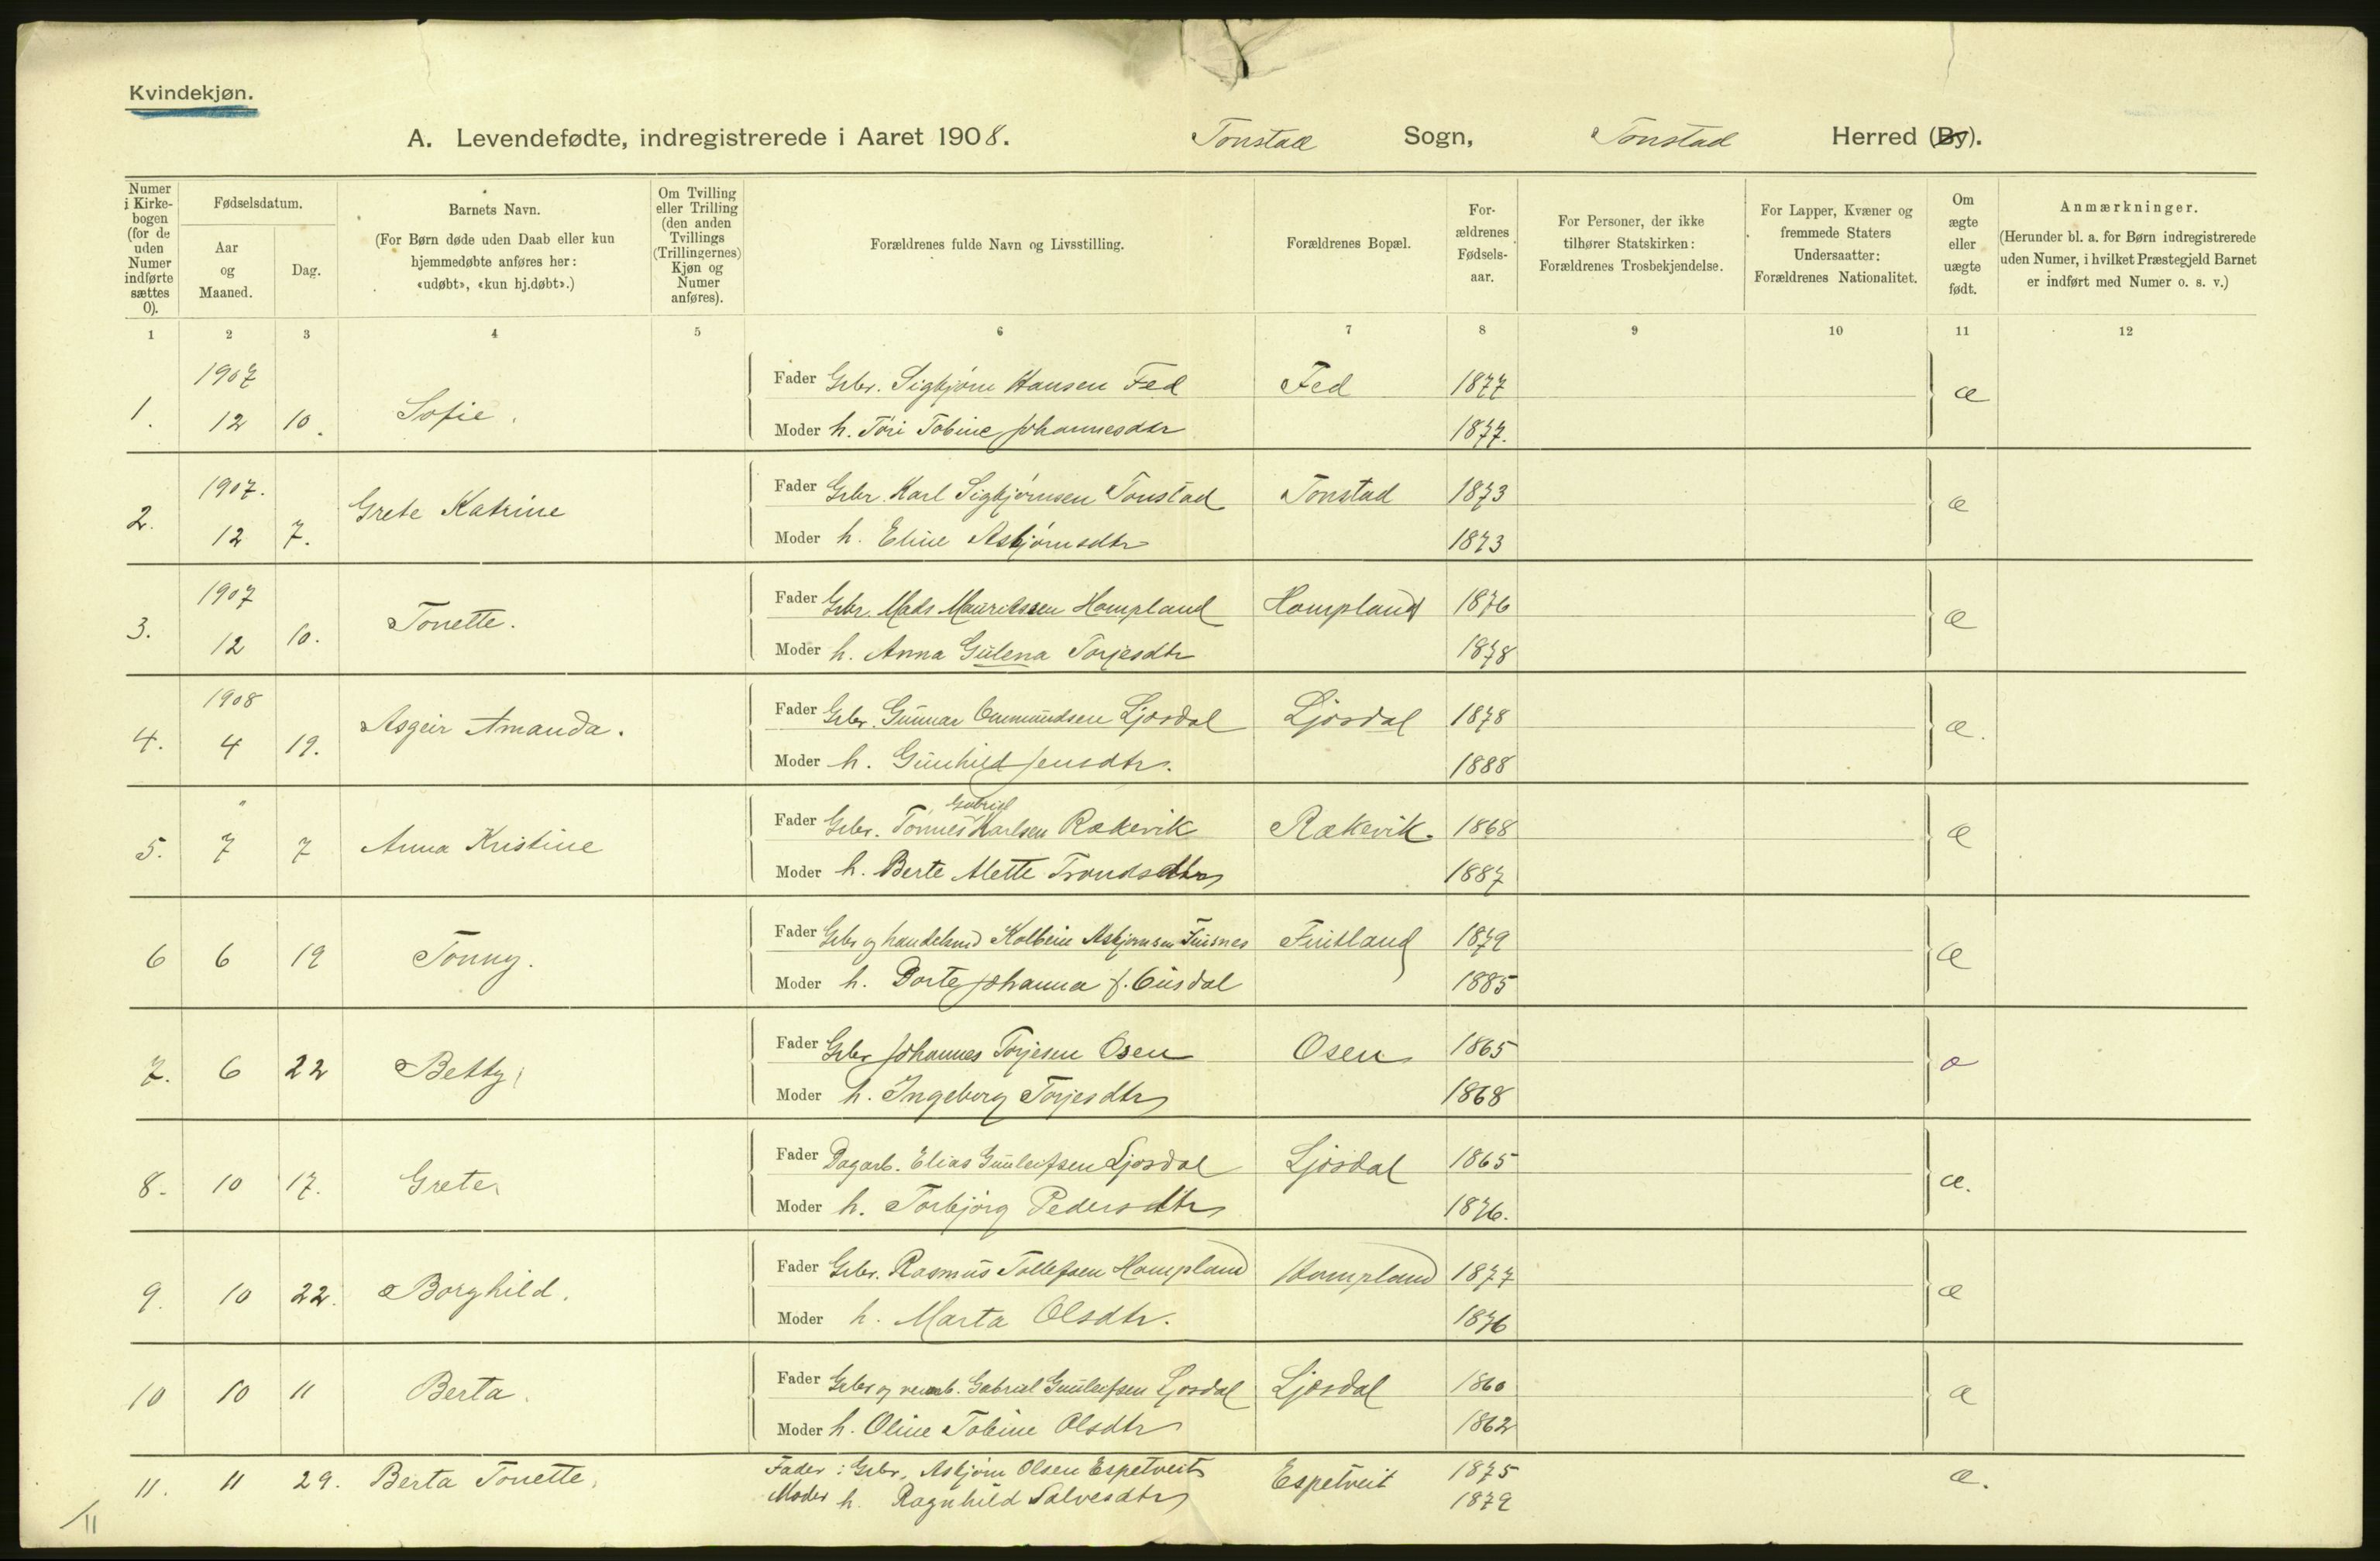 Kvindekjøn.
A. Levendefødte, indregistrerede i Aaret 1908. Tonstad Sogn, Tonstad Herred (By).
Numer i Kirkebogen (for de uden Numer indførte sættes 0).
Fødselsdatum.
Aar og Maaned.
Dag.
Barnets Navn.
(For Børn døde uden Daab eller kun hjemmedøbte anføres her: «udøbt», «kun hj.døbt».)
Om Tvilling eller Trilling (den anden Tvillings (Trillingernes) Kjøn og Numer anføres).
Forældrenes fulde Navn og Livsstilling.
Forældrenes Bopæl.
For-ældrenes Fødsels-aar.
For Personer, der ikke tilhører Statskirken: Forældrenes Trosbekjendelse.
For Lapper, Kvæner og fremmede Staters Undersaatter: Forældrenes Nationalitet.
Om ægte eller uægte født.
Anmærkninger.
(Herunder bl. a. for Børn indregistrerede uden Numer, i hvilket Præstegjeld Barnet er indført med Numer o. s. v.)
1 2 3 4 5 6 7 8 9 10 11 12
1907
Fader Gbr. Sigbjørn Hansen Fed Fed 1877 æ
1. 12 10. Sofie.
Moder h. Tori Tobine Johannesdtr 1877.
1907.
Fader Gbr. Karl Sigbjørnsen Tonstad Tonstad 1873 æ
2. 12 7. Grete Katrine
Moder h. Eline Asbjørnsdtr 1873
1907
Fader Gbr. Mads Mauritssen Hompland Hompland 1876 æ
3. 12 10. Tonette.
Moder h. Anna Gulena Torjesdtr 1878
1908
Fader Gbr. Gunnar Ommundsen Ljosdal Ljosdal 1878 æ.
4. 4 19. Asgeir Amanda.
Moder h. Gunhild Jensdtr. 1888
"
Gabriel
Fader Gbr. Tønnes Karlsen Rækevik Rækevik. 1868 æ
5. 7 7 Anna Kristine
Moder h. Berte Alette Trondsdtr 1887
Fader Gbr og handelsmd Kolbein Asbjørnsen Fuisnes Fintland 1879 æ
6 6 19 Tonny.
Moder h. Dorte Johanna f. Ousdal 1885
Fader Gbr Johannes Torjesen Osen Osen 1865 æ
7. 6 22 Betty
Moder h. Ingeborg Torjesdtr 1868
Fader Dagarb. Elias Gunleifsen Ljosdal Ljosdal 1865 æ.
8. 10 17. Grete
Moder h. Torbjørg Pedersdtr 1876.
Fader Gbr. Rasmus Tollefsen Hompland Hompland 1877 æ
9. 10 22. Borghild.
Moder h. Marta Olsdtr. 1876
Fader Gbr og Gabriel Gunleifsen Ljosdal Ljosdal 1860 æ
10 10 11 Berta.
Moder h. Oline Tobine Olsdtr 1862
Fader: Gbr. Asbjørn Olsen Espetveit Espetveit 1875 æ.
11. 11 29. Berta Tonette.
Moder h. Ragnhild Salvesdtr 1879
/11